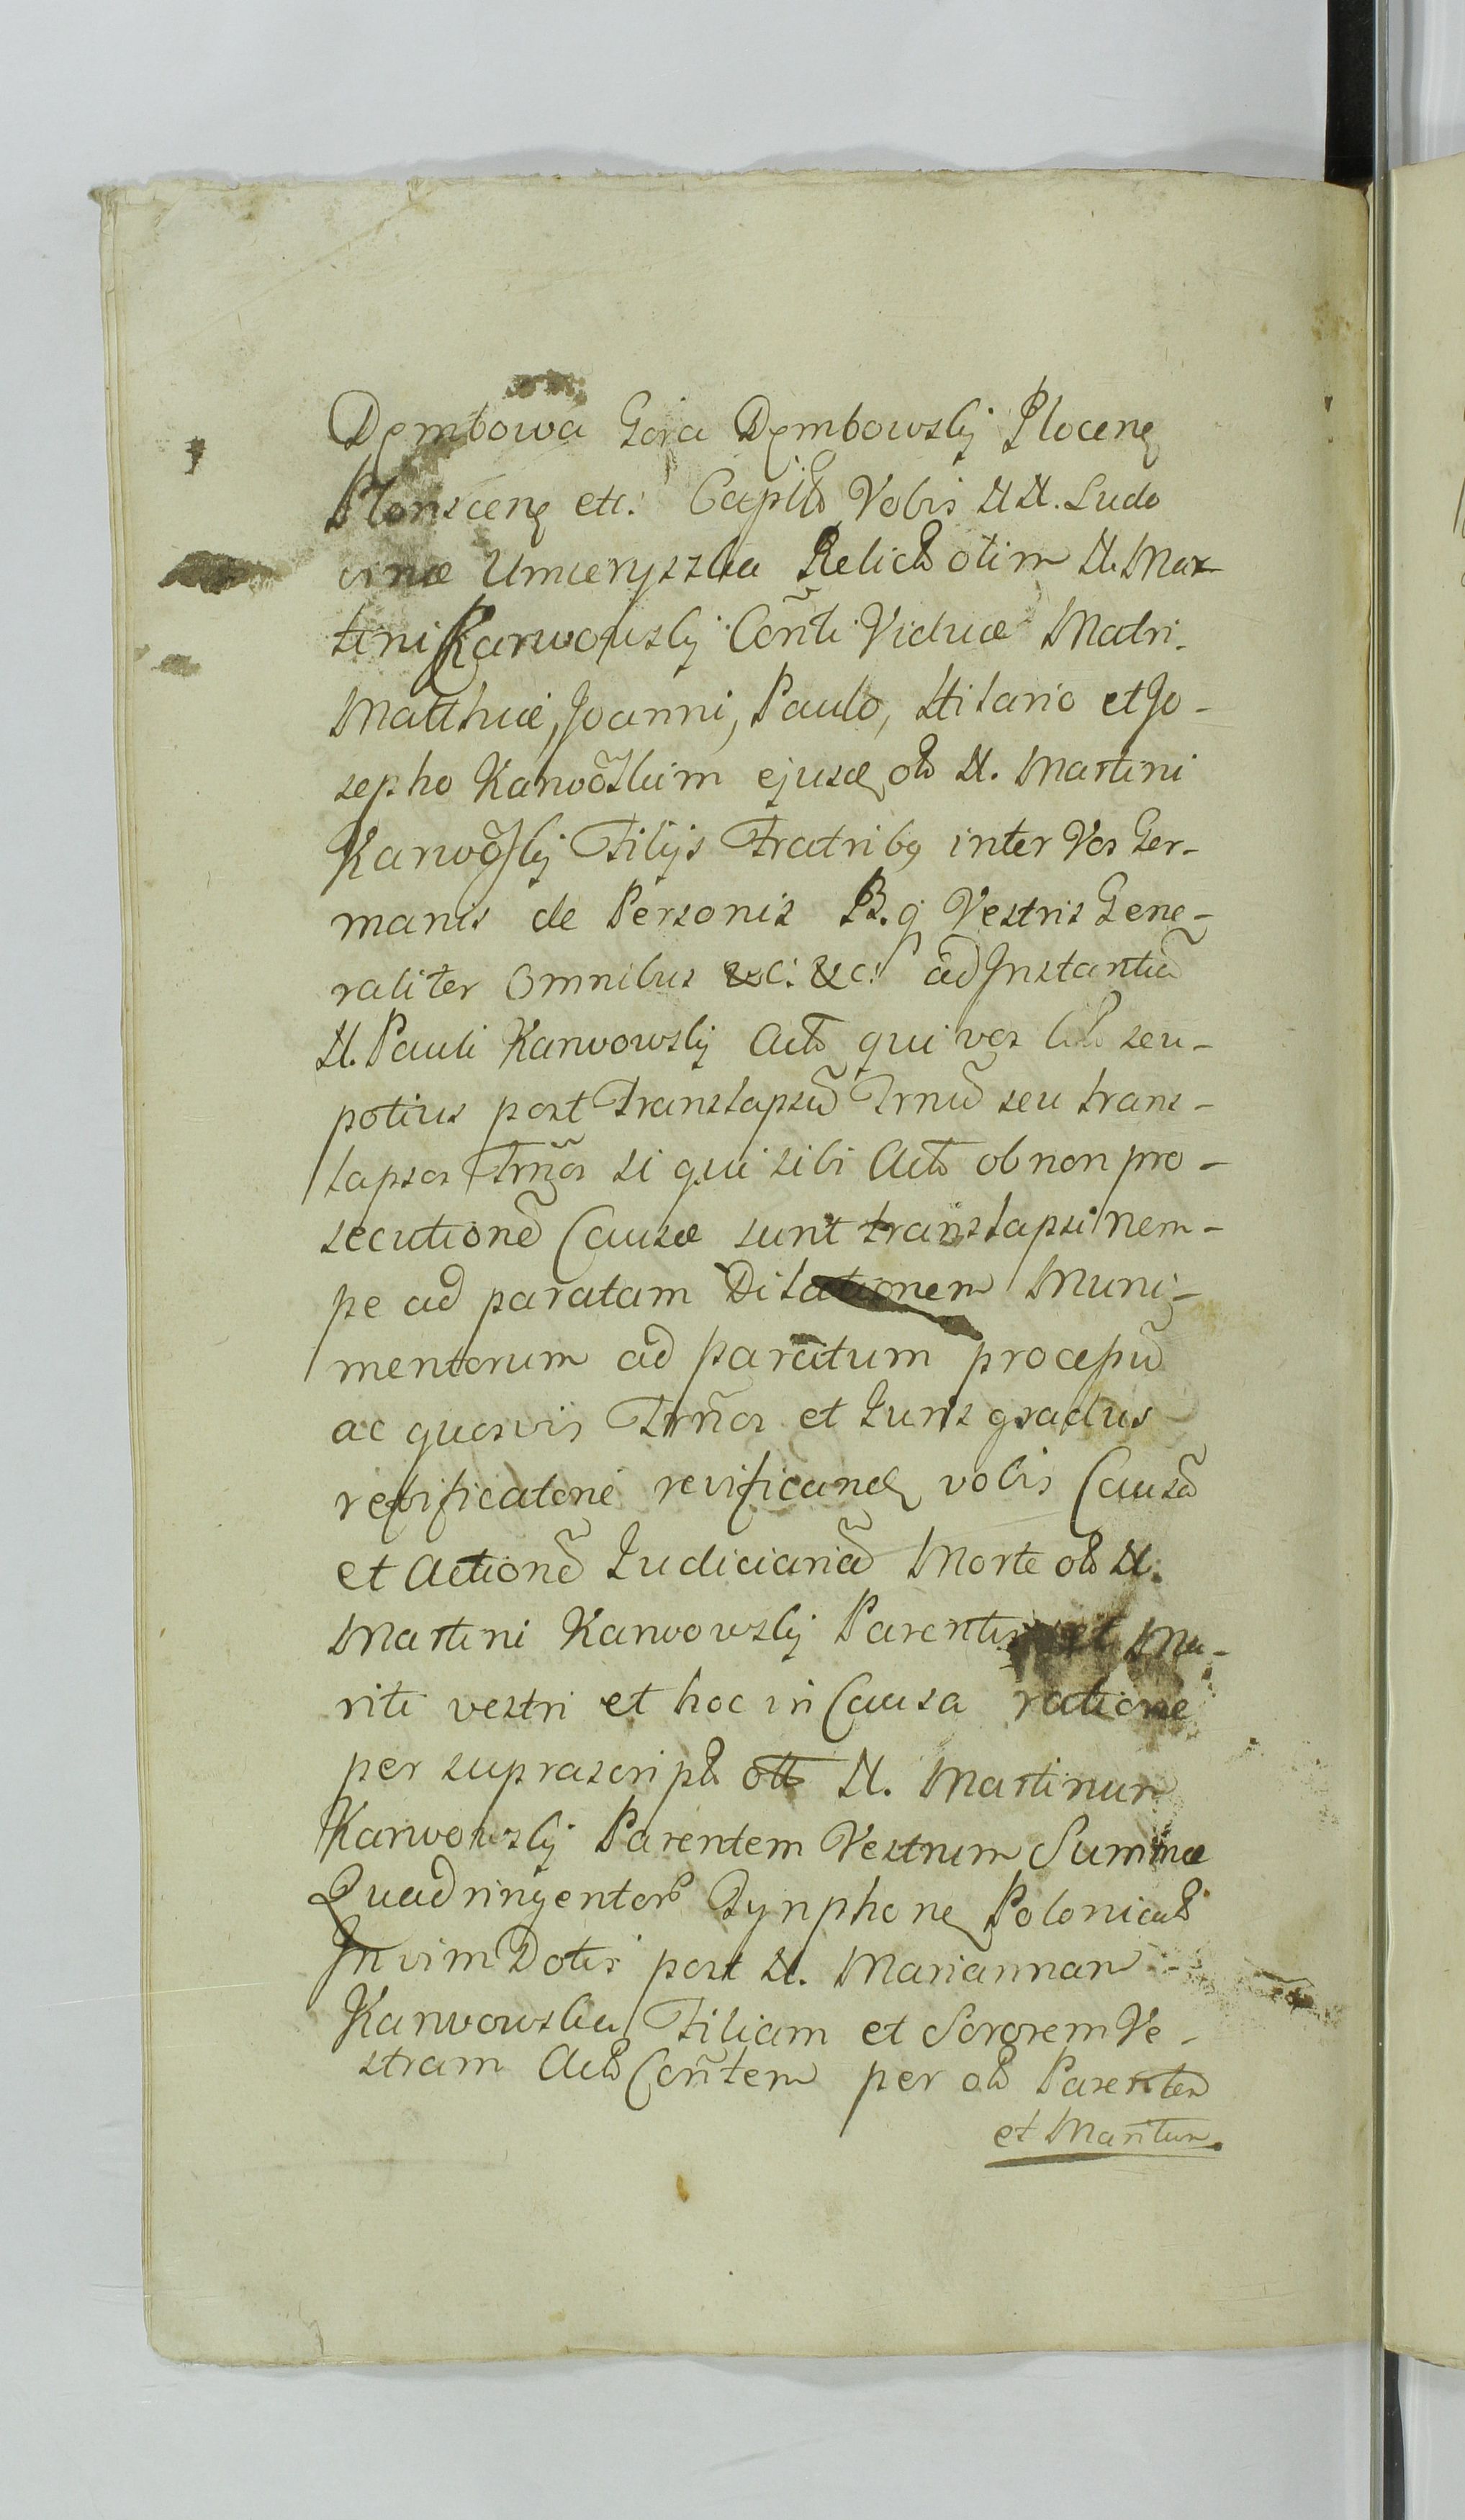 Dembowa Gora Dembowskj Plocens
Plonscens etc: Captlis Vobis N N. Ludo
vinæ Umierzyska Relictæ olim N. Mar-
tini Karwowskj Conti Viduæ Matri.
Matthiæ, Joanni, Paulo, Hilario et Jo-
sepho Karwõskim ejusd olis N. Martini
Karwõskj Filijs Fratribq inter Vos Ger-
manis de Personis B. q Vestris Gene-
raliter Omnibus &c: &c: ad Instantiã
N. Pauli Karwowskj Actis qui vos seu-
potius post translapsũ Trnũ seu trans-
lapsos Trños si qui sibi Actis ob non pro-
secutionẽ Causæ sunt translapsi nem-
pe ad paratam Dilationem Muni-
mentorum ad paratum processũ
ac quosvis Trños et Juris gradus
revificatorie revificand vobis Causã
et Actionẽ Judiciariã Morte olis N.
Martini Karwowskj Parentis et Ma-
riti vestri et hoc in Causa ratione
per suprascript olis N. Martinum
Karwowskj Parentem Vestrum Summæ
Quadringentor Tynphone Polonical
In vim Dotis post N. Mariannam
Karwowska Filiam et Sororem Ve-
stram Actis Conñtem per olis Parentem
et Maritum.